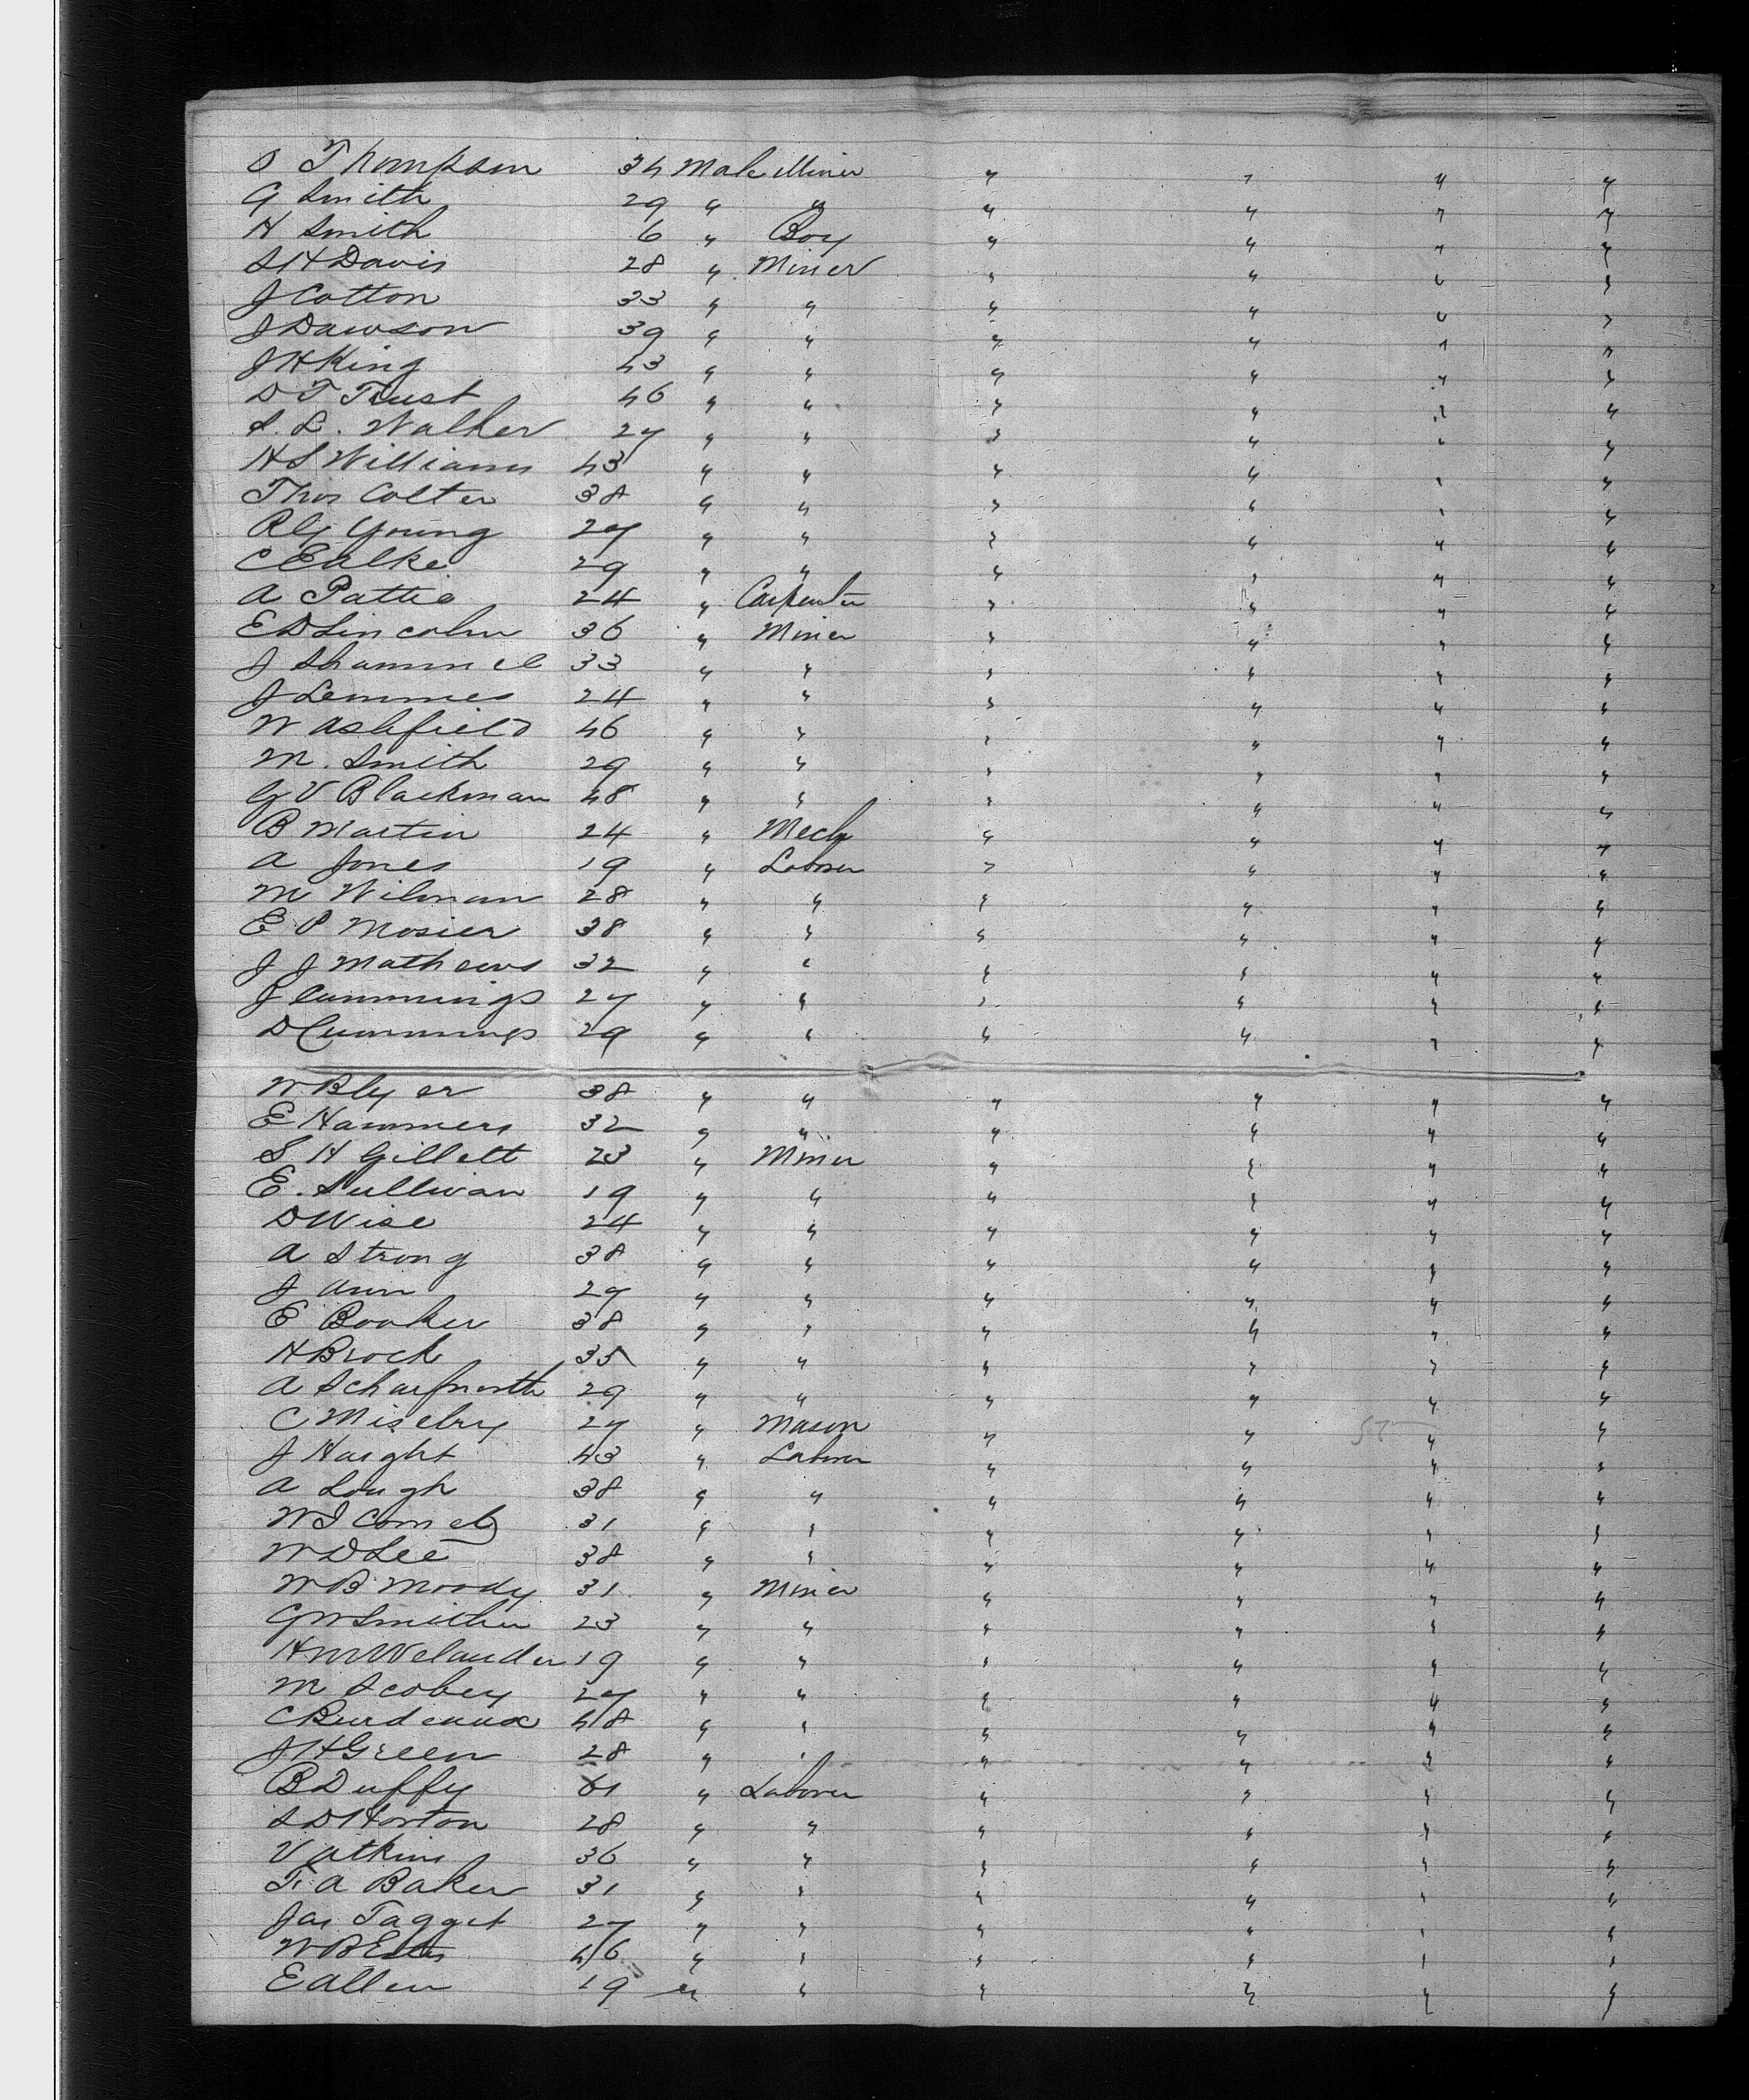 O Thompson 34 Male Miner " " " "
G Smith 29 " " " " " "
H Smith 6 " Boy " " " "
S H Davis 28 " Miner " " " "
J Cotton 33 " " " " " "
J Dawson 39 " " " " " "
J H King 43 " " " " " "
D T Trust 46 " " " " " "
S. L. Walker 27 " " " " " "
H S Williams 43 " " " " " "
Thos Colter 38 " " " " " "
R G Young 27 " " " " " "
C Ealke 29 " " " " " "
A Pattie 24 " Carpenter " " " "
E D Lincoln 36 " Miner " " " "
J Shammel 33 " " " " " "
J Lemmes 24 " " " " " "
W Ashfield 46 " " " " " "
M. Smith 29 " " " " " "
G V Blackman 48 " " " " " "
B Martin 24 " Mech " " " "
A Jones 19 " Laborer " " " "
M Wilman 28 " " " " " "
E P Mosier 38 " " " " " "
J J Mathews 32 " " " " " "
J Cummings 27 " " " " " "
D Cummings 29 " " " " " "
W Blyer 38 " " " " " "
E Hammers 32 " " " " " "
S H Gillett 23 " Miner " " " "
E. Sullivan 19 " " " " " "
D Wise 24 " " " " " "
A Strong 38 " " " " " "
J Ann 29 " " " " " "
E Booker 38 " " " " " "
H Brock 35 " " " " " "
A Scharfnorth 29 " " " " " "
C Miselry 27 " Mason " " " "
J Haight 43 " Laborer " " " "
A Lough 38 " " " " " "
W I 31 " " " " " "
W D Lee 38 " " " " " "
W B Moody 31 " Miner " " " "
G W Smither 23 " " " " " "
H M Welander 19 " " " " " "
M Scobey 27 " " " " " "
C Burdeaux 48 " " " " " "
J H Green 28 " " " " " "
B Duffy 61 " Laborer " " " "
S D Horton 28 " " " " " "
V Atkins 36 " " " " " "
T. A Baker 31 " " " " " "
Jas Tagget 27 " " " " " "
W B Estes 46 " " " " " "
E Allen 19 " " " " " "